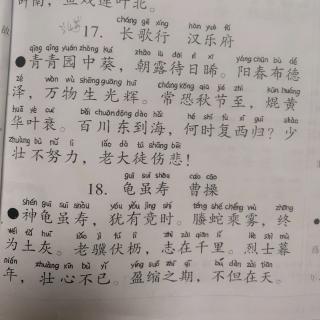 叶南，鱼戏莲叶北。
cháng gē xíng hàn yuè fǔ
17. 长歌行 汉乐府
qīng qīng yuán zhōng kuí zhāo lù dài rì xī yáng chūn bù dé
●青青园中葵，朝露待日晞。阳春布德
zé wàn wù shēng guāng huī cháng kǒng qiū jié zhì kūn huáng
泽，万物生光辉。常恐秋节至，焜黄
huā yè cuī bǎi chuān dōng dào hǎi hé shí fù xī guī shào
华叶衰。百川东到海，何时复西归？少
zhuàng bù nǔ lì lǎo dà tú shāng bēi
壮不努力，老大徒伤悲！
guī suī shòu cáo cāo
18. 龟虽寿 曹操
shén guī suī shòu yóu yǒu jìng shí téng shé chéng wù zhōng
●神龟虽寿，犹有竟时。螣蛇乘雾，终
wéi tǔ huī lǎo jì fú lì zhì zài qiān lǐ liè shì mù
为土灰。老骥伏枥，志在千里。烈士暮
nián zhuàng xīn bù yǐ yíng suō zhī qī bù dàn zài tiān
年，壮心不已。盈缩之期，不但在天。